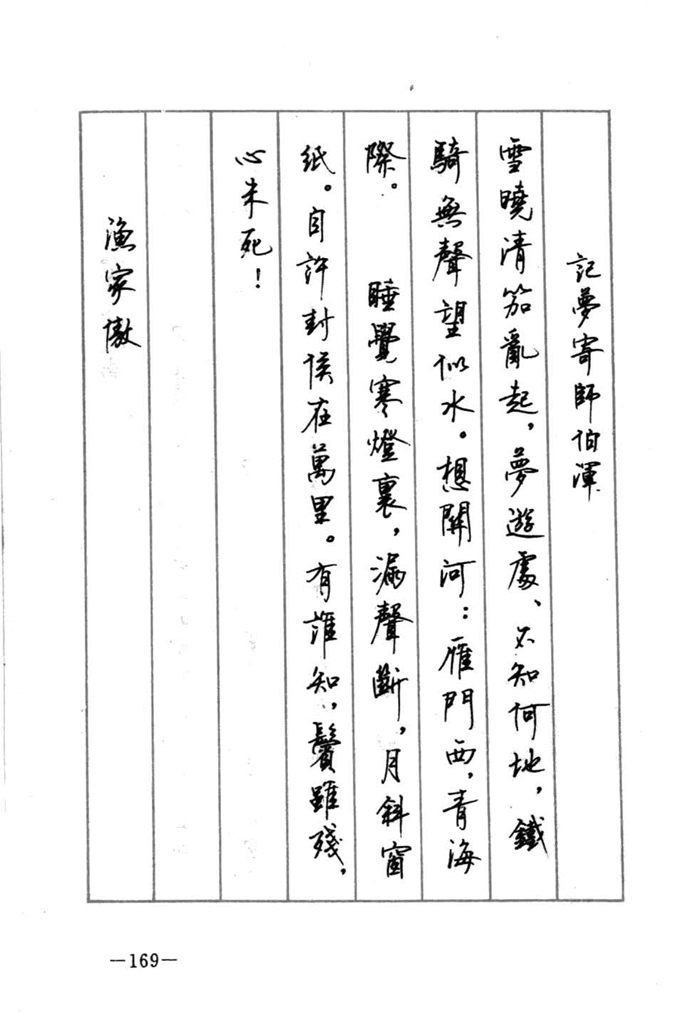 記夢寄師伯渾
雪曉清笳亂起，夢遊處、不知何地，鐵
騎無聲望似水。想關河：雁門西，青海
際。　睡覺寒燈裏，漏聲斷，月斜窗
紙。自許封侯在萬里。有誰知，鬢雖殘，
心未死！
漁家傲
—169—